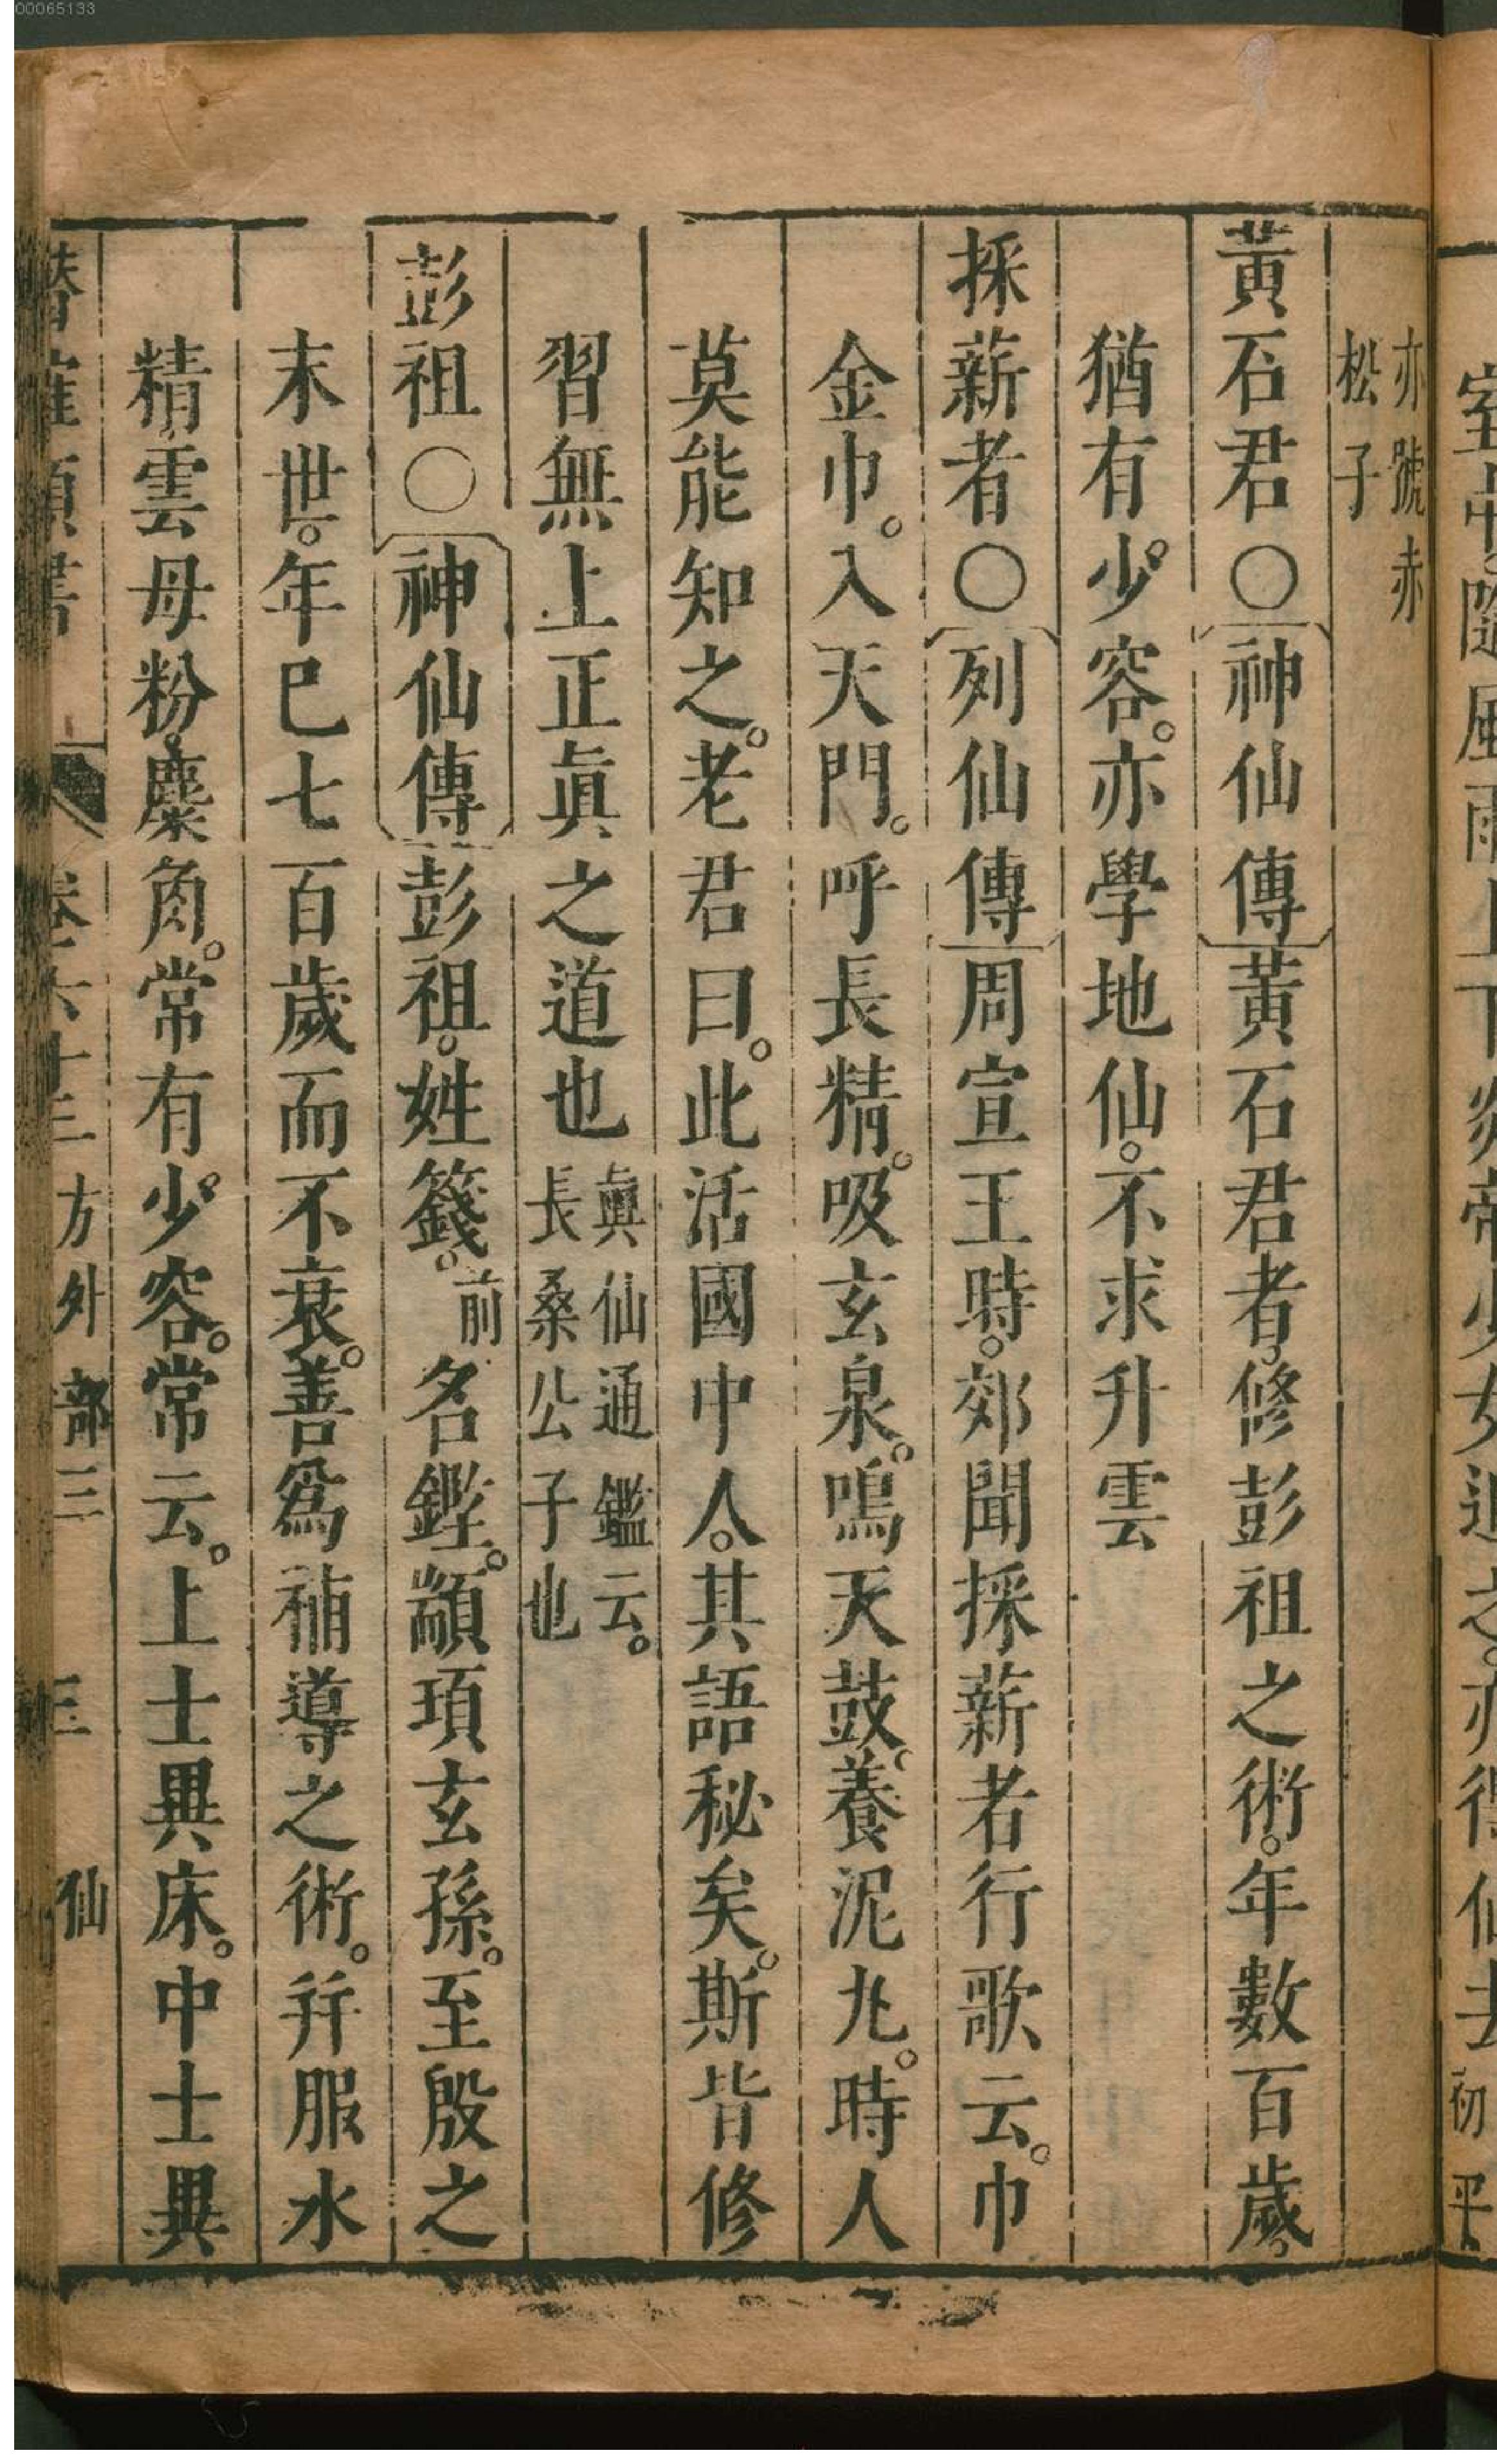 00065133
室中。隨風雨上下炎帝少女追之。亦得仙去初平
亦號赤
松子
黃石君○神仙傳黃石君者。修彭祖之術。年數百歲。
猶有少容。亦學地仙。不求升雲
採薪者○列仙傳周宣王時。郊聞採薪者行歌云。巾
金巾。入天門。呼長精。吸玄泉。鳴天鼓。養泥丸。時人
莫能知之。老君曰。此活國中人。其語秘矣。斯皆修
習無上正眞之道也眞仙通鑑云。
長桑公子也
彭祖○神仙傳彭祖。姓籛。前名鏗。顓頊玄孫。至殷之
末世。年已七百歲而不衰。善爲補導之術。幷服水
精雲母粉。麋角。常有少容。常云。上士異床。中士異
潛確類書 卷六十三 方外部三 三 仙